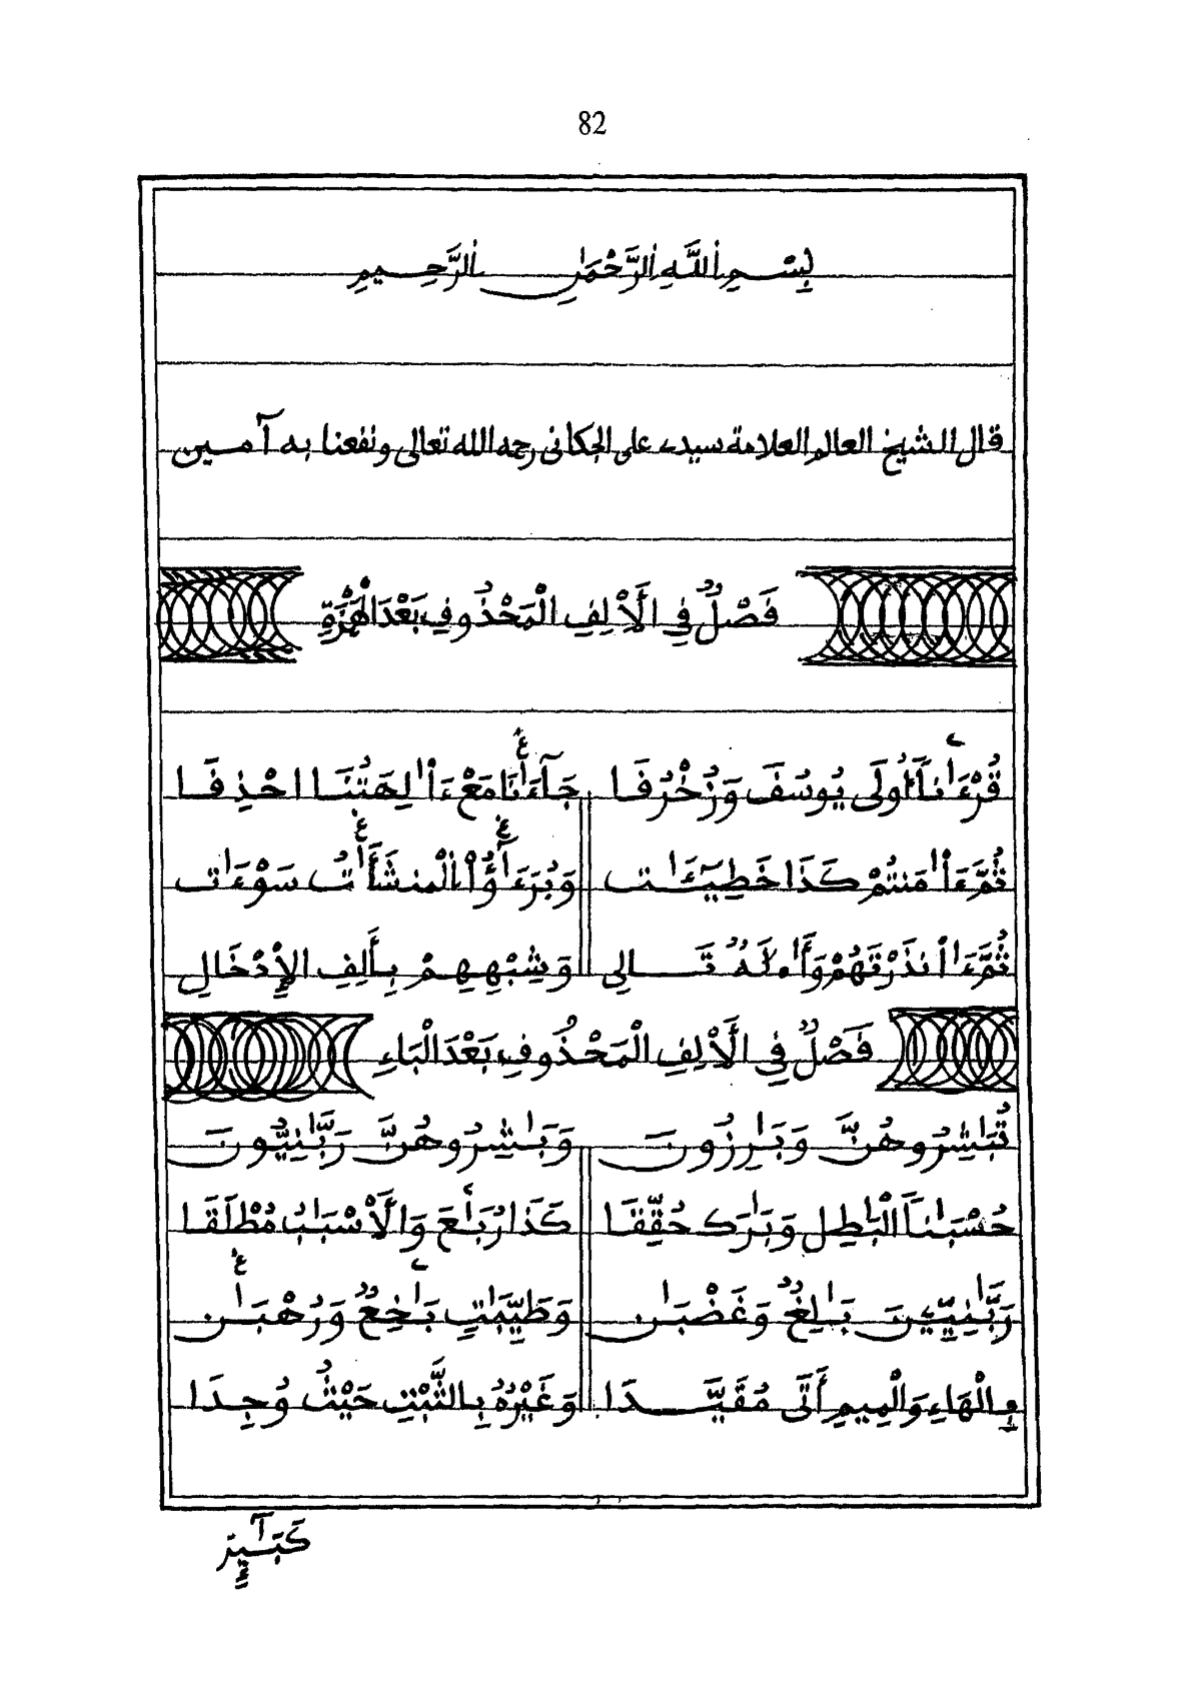 82
بِسْمِ اللَّهِ الرَّحْمَٰنِ الرَّحِيمِ
قال الشيخ العالم العلامة سيدے علي الجكاني رحمه الله تعالى ونفعنا به آمين
فَصْلٌ فِي الَأْلِفِ الْمَحْذُوفِ بَعْدَ الْهَمْزَةِ
قُرْءَٰناً اُولَى يُوسُفَ وَزُخْرُفَا جَآءَٰنَا مَعْ ءَاْٰلِهَتُنَا احْذِفَا
ثُمَّ ءَاْٰمَنتُمْ كَذَا خَطِيٓـَٔـٰت وَبُرَءَٰٓؤُاْ الْمُنشَـَٔـٰتُ سَوْءَٰت
ثُمَّ ءَاٰنذَرْتَهُمْ وَأَ۟لَهٌ تَالِي وَشِبْهِهِمْ بِأَلِفِ الإِدْخَالِ
فَصْلٌ فِي الَأْلِفِ الْمَحْذُوفِ بَعْدَ الْبَاءِ
تُبَٰشِرُوهُنَّ وَبَٰرِزُونَ وَبَٰشِرُوهُنَّ رَبَّٰنِيُّونَ
حُسْبَٰناً الْبَٰطِل وَبَٰرَك حُقِّقَا كَذَا رُبَٰعَ وَالَأْسْبَٰبُ مُطْلَقَا
رَبَّٰنِيِّينَ بَٰلِغٌ وَغَضْبَٰن وَطَيِّبَٰتِ بَٰخِعٌ وَرُهْبَٰن
بِالْهَاءِ وَالْمِيمِ أَتَى مُقَيَّدَا وَغَيْرُهُ بِالثَّبْتِ حَيْثُ وُجِدَا
كَبَٰٓئِر